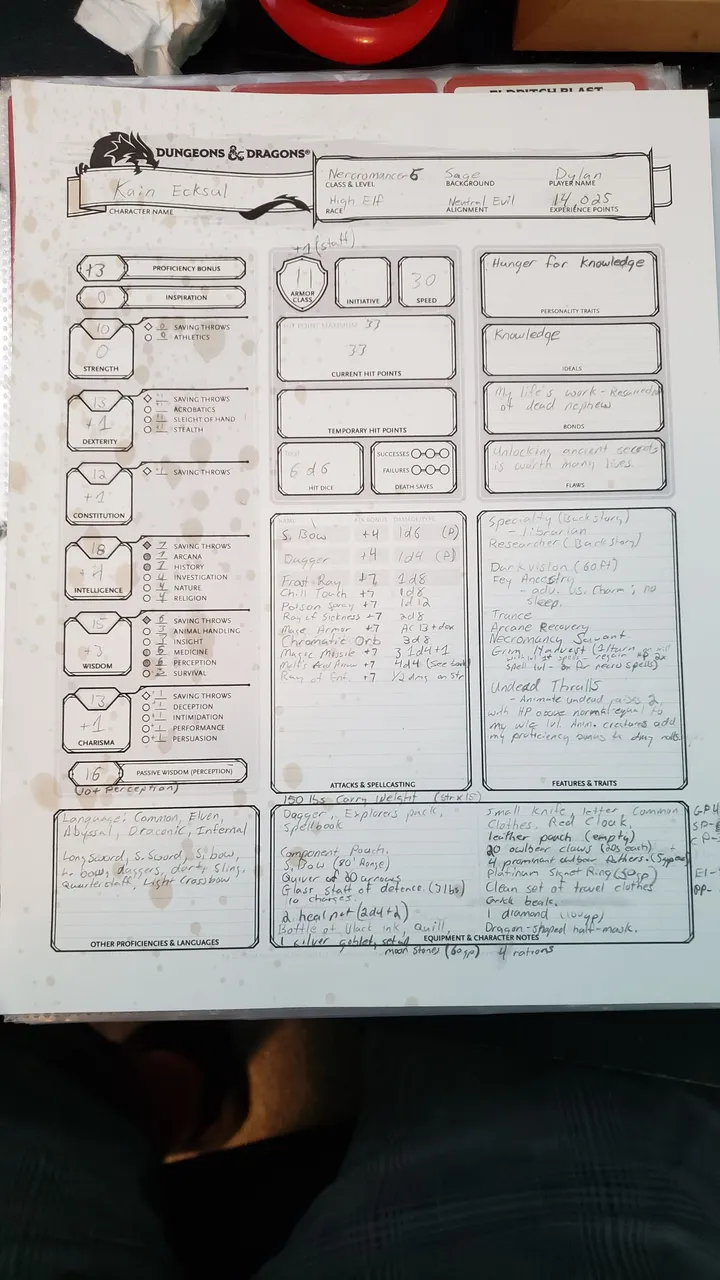 DUNGEONS & DRAGONS®
Kain Ecksul
CHARACTER NAME
Necromancer 6
CLASS & LEVEL
Sage
BACKGROUND
Dylan
PLAYER NAME
High Elf
RACE
Neutral Evil
ALIGNMENT
14,025
EXPERIENCE POINTS
+3
PROFICIENCY BONUS
0
INSPIRATION
10
0
STRENGTH
0 SAVING THROWS
0 ATHLETICS
13
+1
DEXTERITY
+1 SAVING THROWS
+1 ACROBATICS
+1 SLEIGHT OF HAND
+1 STEALTH
12
+1
CONSTITUTION
+1 SAVING THROWS
18
+4
INTELLIGENCE
7 SAVING THROWS
7 ARCANA
7 HISTORY
4 INVESTIGATION
4 NATURE
4 RELIGION
15
+3
WISDOM
6 SAVING THROWS
3 ANIMAL HANDLING
3 INSIGHT
6 MEDICINE
6 PERCEPTION
3 SURVIVAL
13
+1
CHARISMA
+1 SAVING THROWS
+1 DECEPTION
+1 INTIMIDATION
+1 PERFORMANCE
+1 PERSUASION
16
PASSIVE WISDOM (PERCEPTION)
(10+ Perception)
Language: Common, Elven,
Abyssal, Draconic, Infernal
Longsword, S. Sword, S. bow,
daggers, dart, sling,
Quarterstaff, Light Crossbow
OTHER PROFICIENCIES & LANGUAGES
+1 (staff)
11
ARMOR
CLASS
INITIATIVE
30
SPEED
HIT POINT MAXIMUM 33
33
CURRENT HIT POINTS
TEMPORARY HIT POINTS
Total
6 d6
HIT DICE
SUCCESSES
FAILURES
DEATH SAVES
NAME ATK BONUS DAMAGE/TYPE
S. Bow +4 1d6 (P)
Dagger +4 1d4 (P)
Frost Ray +7 1d8
Chill Touch +7 1d8
Poison Spray +7 1d12
Ray of Sickness +7 2d8
Mage Armor +7 AC 13 + dex
Chromatic Orb 3d8
Magic Missile +7 3 1d4+1
Melf's Acid Arrow +7 4d4
Ray of Enf. +7 1/2 dmg on Str
ATTACKS & SPELLCASTING
150 lbs Carry Weight (Str x 15)
Dagger, Explorers pack,
Spellbook
Component Pouch.
S. Bow (80' Range)
Quiver of 20 arrows
Glass staff of defence (3 lbs)
10 charges.
2 heal pot (2d4+2)
Bottle of black ink, Quill,
1 silver goblet, set w/
moon stones (60gp)
small knife, letter, Common
Clothes. Red Cloak.
leather pouch (empty)
20 owlbear claws (20s each)
4 prominant owlbear feathers.
Platinum Signet Ring (50gp)
Clean set of travel clothes
Grick beak.
1 diamond (100gp)
Dragon-shaped half-mask.
4 rations
EQUIPMENT & CHARACTER NOTES
Hunger for Knowledge
PERSONALITY TRAITS
Knowledge
IDEALS
My life's work - Resurrection
of dead nephew
BONDS
Unlocking ancient secrets
is worth many lives.
FLAWS
Specialty (Backstory)
- Librarian
Researcher (Backstory)
Darkvision (60ft)
Fey Ancestry
- adv. vs. Charm; no
sleep.
Trance
Arcane Recovery
Necromancy Savant
Grim Harvest (1/turn on kill
with 1st spell, regain HP 2x
spell lvl - 3x for necro spells)
Undead Thralls
- Animate undead raises 2,
with HP above normal equal to
my wiz lvl. Anim. creatures add
my proficiency bonus to dmg rolls
FEATURES & TRAITS
ELDRITCH BLAST